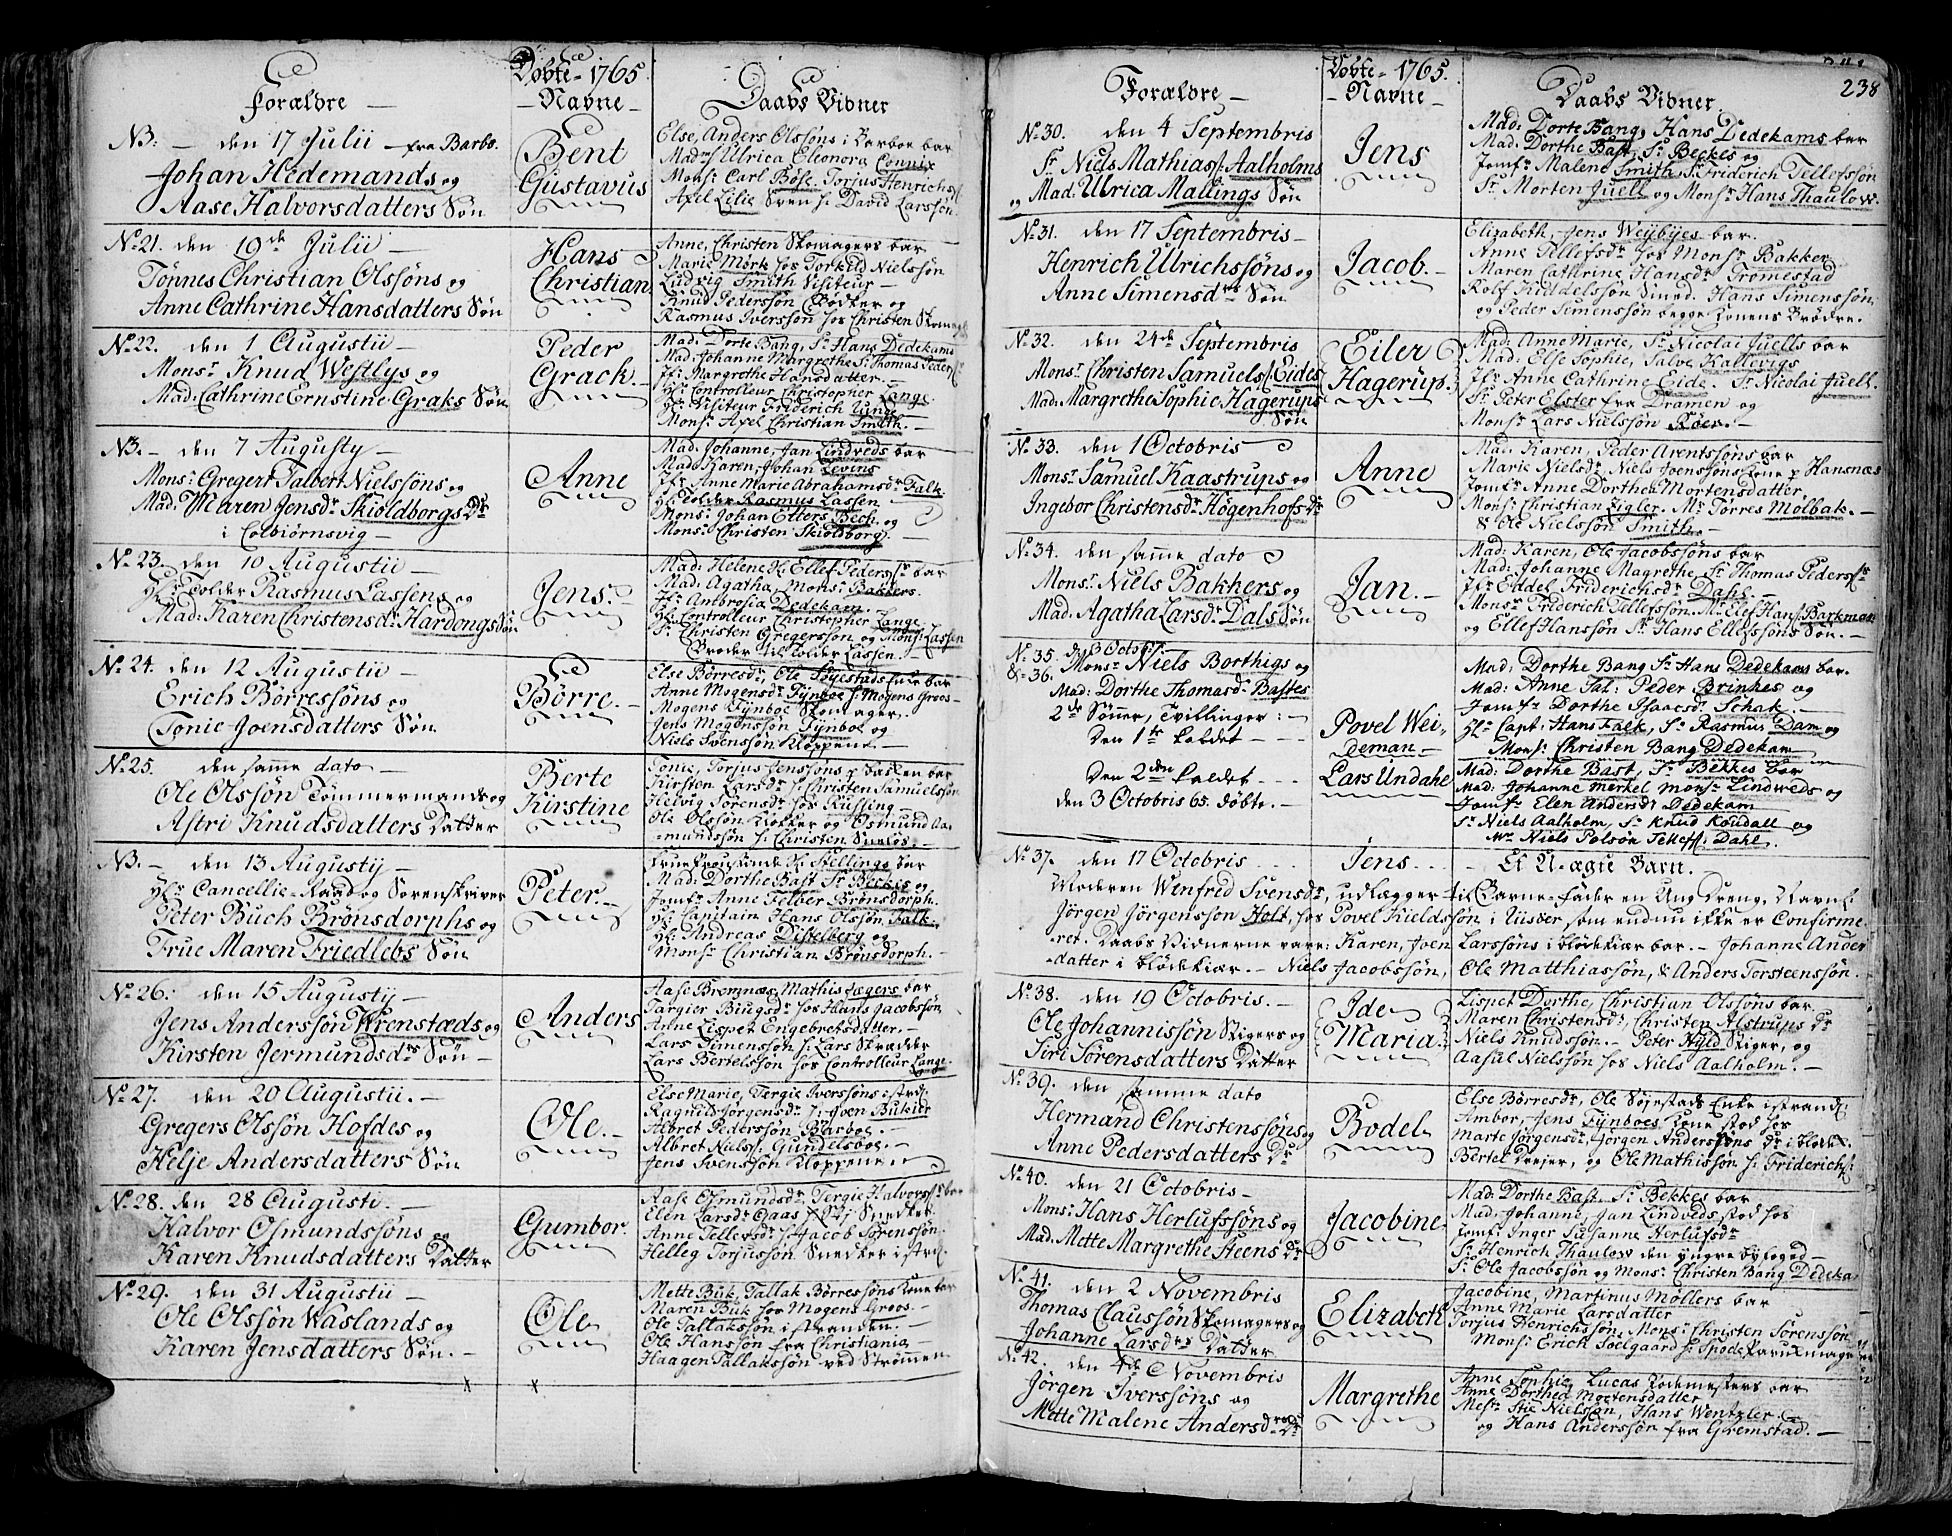 Forældre
Døbte 1765.
Navne
Daabs Vidner
NB: den 17 Julii fra Barbo.
Johan Hedemands og
Aase Halvorsdatters Søn
Bent
Gustavus
Else, Anders Olssøns i Barboe bar
Mad: Ulrica Eleonora Connix
Mons: Carl Böse. Torjus Henrichs
Axel Lilie Sven David Larssøn.
No 21. den 19de Julii
Tønnes Christian Olssøns og
Anne Cathrine Hansdatters Søn
Hans
Christian.
Anne, Christen Skomagers bar
Marie Mørk hos Torkild Nielssøn
Ludvig Smith Visiteur
Knud Pederssøn Bødker og
Rasmus Iverssøn hos Christen
No 22. den 1 Augustii
Mons: Knud Westlys og
Mad: Cathrine Ernstine Graks Søn
Peder
Grack
Mad: Dorte Bang, Sr Hans Dedekams
Mad: Johanne Margrethe Sr Thomas Peders
Jfr Margrethe Hansdatter.
Hr Controlleur Christopher Lange
Hr Visiteur Friderich
Mons: Axel Christian Smith.
NB. den 7 Augusty
Mons: Gregert Talbert Nielssøns og
Mad: Maren Jensdr Skioldborgs Dr
i Colbiørnsvig
Anne
Mad: Johanne, Jan Lindveds bar
Mad: Karen, Johan Levins
Jfr Anne Marie Abrahamsdr Falk.
Hr Tolder Rasmus Lassen
Mons: Johan Etters Bech. og
Mons: Christen Skioldborg.
No 23. den 10 Augustii
Hr Tolder Rasmus Lassens og
Mad: Karen Christensdr Hardongs Søn
Jens.
Mad: Helene Ellef Peders bar
Mad: Agatha Mons: Bakkers.
Jfr Ambrosia Dedekam.
Hr Controlleur Christopher Lange
Sr Christen Gregerssøn og Mons: Lassen
Broder til Tolder Lassen.
No 24. den 12 Augustii
Erich Børressøns og
Tonie Joensdatters Søn
Børre.
Else Børresdr, Ole Søyestads bar
Anne Mogensdr Fynboe Mogens Groos
Mogens Fynboe Skomager.
Jens Mogenssøn Fynboe og
Niels Svenssøn Kloppene.
No 25. den samme dato
Ole Olssøn Tømmermands og
Astri Knudsdatters Datter
Berte
Kirstine
Tonie, Torjus Jenssøns bar
Kirsten Larsdr Christen Samuelssøn
Helvig Sørensdr hos Russing
Ole Olssøn Klokker og Osmund Aa-
mundssøn Christen
NB. den 13 Augusty
Hr Cancellie Raad og Sorenskriver
Peter Buch Brønsdorphs og
Frue Maren Friedlebs Søn
Peter.
Stellings bar
Mad: Dorthe Bast Sr Beckes og
Jomfr Anne Felber Brønsdorph.
Hr Capitain Hans Olssøn Falk.
Hr Andreas Distelberg og
Mons: Christian Brønsdorph.
No 26. den 15 Augusty
Jens Anderssøn Wrenstæds og
Kirsten Jermundsdrs Søn
Anders
Aase Bremnæs, Mathis Jægers bar
Targier Biugsdr hos Hans Jacobssøn
Anne Lispet Engebretsdatter.
Lars Simenssøn Lars
Lars Bertelssøn hos Controlleur Lange.
No 27. den 20 Augustii.
Gregers Olssøn Hofdes og
Helje Andersdatters Søn
Ole.
Else Marie, Tergie Iverssøns
Ragnild Jørgensdr Joen Bukier
Albret Pederssøn Barboe.
Albret Niels Gundelsboe.
Jens Svenssøn Kloppene
No 28. den 28 Augusti.
Halvor Osmundssøns og
Karen Knudsdatters Datter
Gumbor.
Aase Osmundsdr, Tergie Halvors bar
Elen Larsdr Snedker
Anne Tellefsdr Jacob Sørenssøn
Helleg Torjussøn Snedker
No 29. den 31 Augustii
Ole Olssøn Waslands og
Karen Jensdatters Søn.
Ole
Mette Buk, Tallak Børressøns Kone bar
Maren Buk hos Mogens Groos.
Ole Tallakssøn i stranden.
Ole Hanssøn fra Christiania
Haagen Tallakssøn ved Strømmen
238
Forældre
Døbte 1765.
Navne
Daabs Vidner.
No 30. den 4 Septembris
Sr Niels Mathias Aalholms
og Mad: Ulrica Mallings Søn
Jens
Mad: Dorte Bang, Hans Dedekams bar
Mad: Dorthe Bast, Sr Beckes og
Jomfr Malene Smith Sr Friderich Tellefssøn
Sr Morten Juell og Monsr Hans Thaulow.
No 31. den 17 Septembris
Henrich Ulrichssøns og
Anne Simensdrs Søn
Jacob.
Elizabeth, Jens Weybyes bar.
Anne Tellefsdr hos Monsr Bakker
Maren Cathrine Hansdr Tromestad
Rolf Kiddelssøn Smed. Hans Simenssøn
og Peder Simenssøn begge Konens Brødre.
No 32. den 24de Septembris
Monsr Christen Samuels Eides
Mad: Margrethe Sophie Hagerups
Søn
Eiler
Hagerup.
Mad: Anne Marie, Sr Nicolai Juells bar
Mad: Else Sophie, Salve Kallevigs
Jfr Anne Cathrine Eide. Sr Nicolai Juell.
Sr Peter Elster fra Dramen og
Monsr Lars Nielssøn Røer.
No 33. den 1 Octobris
Monsr Samuel Kaastrups og
Ingebor Christensdr Høgenhofs Dr
Anne
Mad: Karen, Peder Arentssøns bar
Marie Nielsdr Niels Joenssøns Kone Hansnæs
Jomfr Anne Dorthea Mortensdatter,
Monsr Christian Zigler. Mr Torres Molbak.
& Ole Nielssøn Smith.
No 34. den samme dato
Monsr Niels Bakkers og
Mad: Agatha Larsdr Dals Søn
Jan.
Mad: Karen, Ole Jacobssøns bar
Mad: Johanne Magrethe, Sr Thomas Peders
Jfr Eddel Friderichsdr Dahl.
Monsr Friderich Tellefssøn. Mr Elef Hans Barkman
og Ellef Hanssøn Sr Hans Ellefssøns Søn.
No 35
& 36.
Monsr Niels Borthigs og
Mad: Dorthe Thomasdr Bastes
2de Sønner, Tvillinger:
Den 1te kaldet
Den 2den kaldet
den 3 Octobris 65. døbte.
Povel Wei-
deman
Lars Undahl
Mad: Dorthe Bang Sr Hans Dedekams bar.
Mad: Anne Peder Brinkes og
Jomfr Dorthe Isaacsdr Schak.
Hr Capt: Hans Falk, Sr Rasmus Dam og
Monsr Christen Bang Dedekam
Mad: Dorthe Bast, Sr Bekkes bar
Mad: Johanne Merkel Monsr Lindweds og
Jomfr Elen Andersdr Dedekam
Sr Niels Aalholm, Sr Knud Koudall og
Mr Niels Polsøn Tellefs: Dahl.
No 37. den 17 Octobris
Jens. Et U-ægte Barn.
Moderen Wenfred Svensdr, udlægger til Barne-fader en Ung Dreng, Navnl:
Jørgen Jørgenssøn Holt, hos Povel Kieldssøn i som endnu ikke er Confirme-
ret. Daabs Vidnerne vare: Karen, Joen Larssøns i blødekiær bar. Johanne Anders
datter i blødekiær. Niels Jacobssøn, Ole Matthiassøn, & Anders Torsteenssøn.
No 38. den 19 Octobris.
Ole Johannissøn Stigers og
Siri Sørensdatters Datter
Ide
Maria.
Lispet Dorthe, Christian Olssøns bar
Maren Christensdr, Christen Alstrups Dr
Niels Knudssøn. Peter Hyld Stiger, og
Aasul Nielssøn hos Niels Aalholm.
No 39. den samme dato
Hermand Christenssøns og
Anne Pedersdatters Dr
Bodel
Else Børresdr, Ole Søyestads Enke i strand:
Ambor, Jens Fynboes Kone stod hos
Marte Jørgensdr, Jørgen Anderssøns Dr i blødek.
Bertel Drejer, og Ole Mathissøn Friderichs:
No 40. den 21 Octobris
Monsr Hans Herlufssøns og
Mad: Mette Margrethe Steens Dr
Jacobine
Mad: Dorthe Bast, Sr Bekkes bar
Mad: Johanne, Jan Lindveds stod hos
Jomfr Inger Susanne Herlufsdr
Sr Henrich Thaulow den yngre byfoged
Sr Ole Jacobssøn og Monsr Christen Bang Dedeka
No 41. den 2 Novembris
Thomas Claussøn Skomagers og
Johanne Larsdrs Datter
Elizabeth
Jacobine, Martinus Møllers bar
Anne Marie Larsdatter
Torjus Henrichssøn, Monsr Christen Sørenssøn
Monsr Erich Soelgaard
No 42. den 4de Novembris
Jørgen Iverssøns og
Mette Malene Andersdrs Dr
Margrethe
Anne Sophie, Lucas bar
Anne Dorthea Mortensdatter
Mestr Stie Nielssøn, Hans Wentzler.
og Hans Anderssøn fra Gremstad.